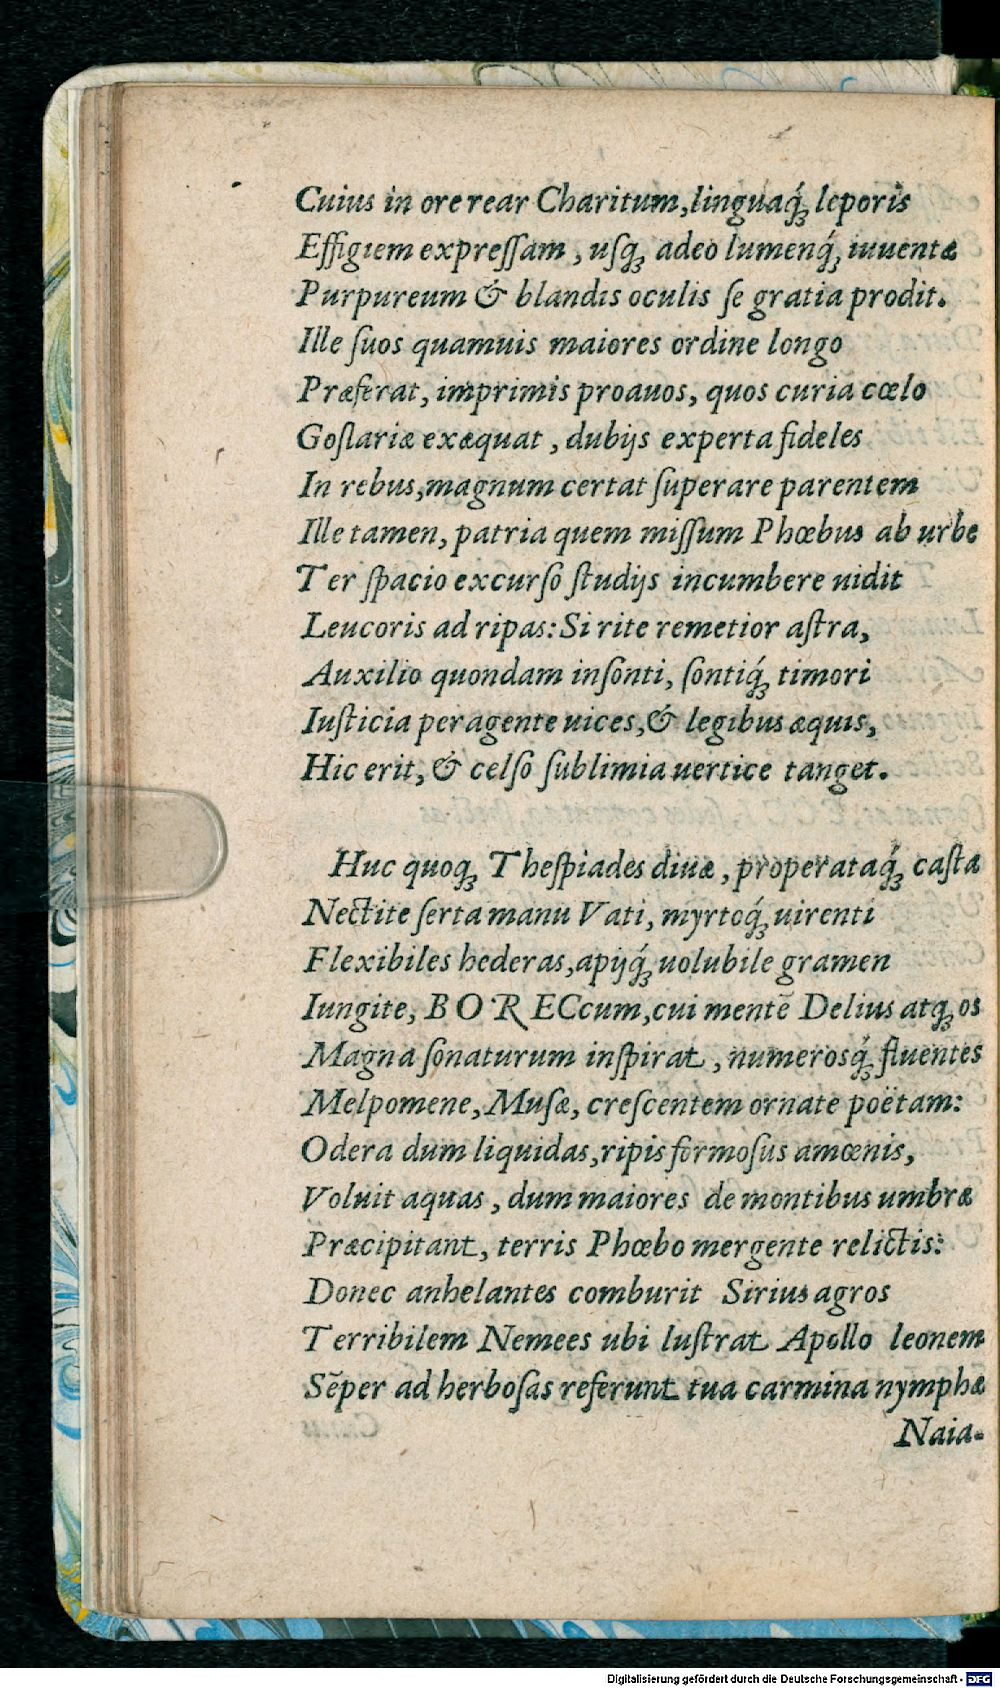 Cuius in ore rear Charitum, linguaq́ꝫ leporis
Effigiem expreſſam, uſqꝫ adeo lumenq́ꝫ iuuentæ
Purpureum & blandis oculis ſe gratia prodit.
Ille ſuos quamuis maiores ordine longo
Præferat, imprimis proauos, quos curia cœlo
Goſlariæ exæquat, dubijs experta fideles
In rebus, magnum certat ſuperare parentem
Ille tamen, patria quem miſſum Phœbus ab urbe
Ter ſpacio excurſo ſtudijs incumbere uidit
Leucoris ad ripas: Si rite remetior aſtra,
Auxilio quondam inſonti, ſontiq́ꝫ timori
Iuſticia peragente uices, & legibus æquis,
Hic erit, & celſo ſublimia uertice tanget.
Huc quoqꝫ Theſpiades diuæ, properataq́ꝫ caſta
Nectite ſerta manu Vati, myrtoq́ꝫ uirenti
Flexibiles hederas, apijq́ꝫ uolubile gramen
Iungite, BORECcum, cui mentē Delius atqꝫ os
Magna ſonaturum inſpirat, numerosq́ꝫ fluentes
Melpomene, Muſæ, creſcentem ornate poëtam:
Odera dum liquidas, ripis formoſus amœnis,
Voluit aquas, dum maiores de montibus umbræ
Præcipitant, terris Phœbo mergente relictis:
Donec anhelantes comburit Sirius agros
Terribilem Nemees ubi luſtrat Apollo leonem
Sēper ad herboſas referunt tua carmina nymphæ
Naia-
Digitalisierung gefördert durch die Deutsche Forschungsgemeinschaft - DFG